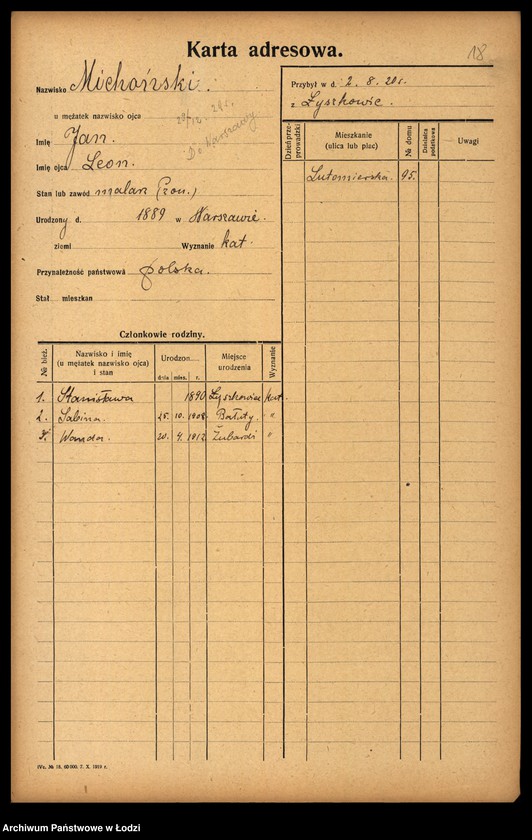 18
Karta adresowa.
Nazwisko Michoński.
u mężatek nazwisko ojca
20/12. 20 r.
Do Warszawy
Imię Jan.
Imię ojca Leon.
Stan lub zawód malarz (żon.)
Urodzony d. 1889 w Warszawie.
ziemi Wyznanie kat.
Przynależność państwowa polska.
Stał. mieszkan
Przybył w d. 2. 8. 20 r.
z Łyszkowic.
Dzień przeprowadzki
Mieszkanie
(ulica lub plac)
№ domu
Dzielnica
podatkowa
Uwagi
Lutomierska. 95.
Członkowie rodziny.
№ bież.
Nazwisko i imię
(u mężatek nazwisko ojca)
i stan
Urodzon
dnia mies. r.
Miejsce
urodzenia
Wyznanie
1. Stanisława 1890 Łyszkowice kat.
2. Sabina. 25. 10. 1908. Bałuty. "
3. Wanda. 20. 4. 1912 Żubardź "
№ 19. 60 000. 7. X. 1919 r.
Archiwum Państwowe w Łodzi